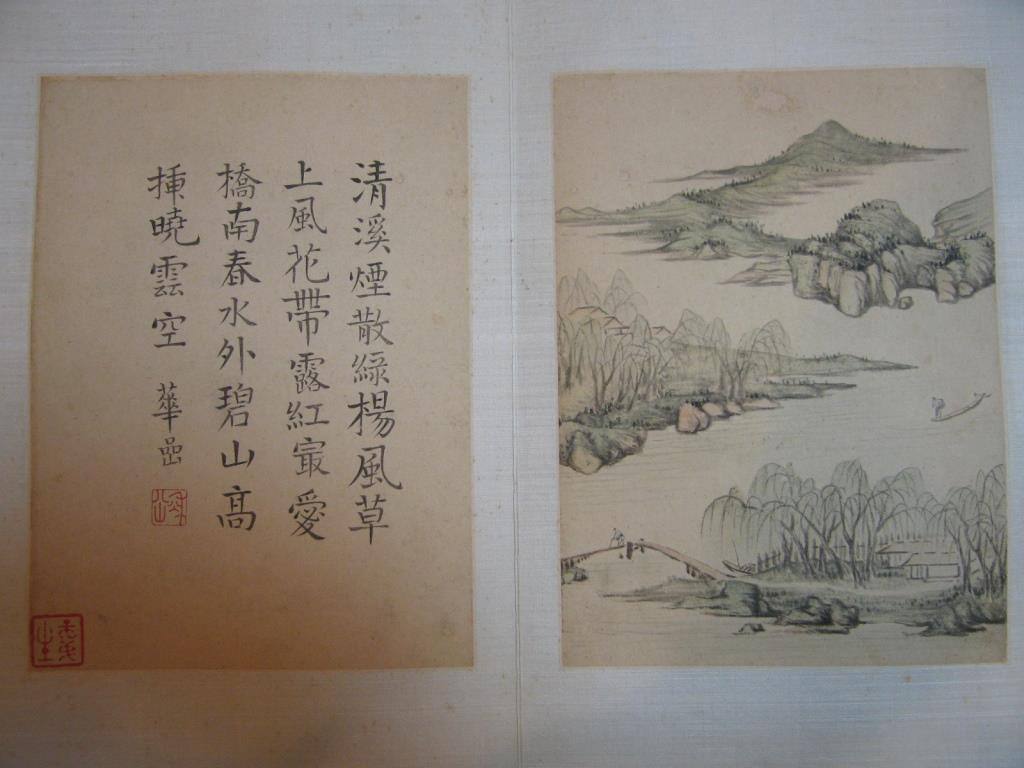 清溪煙散綠楊風草
上風花帶露紅寂愛
橋南春水外碧山高
插曉雲空 華嵒